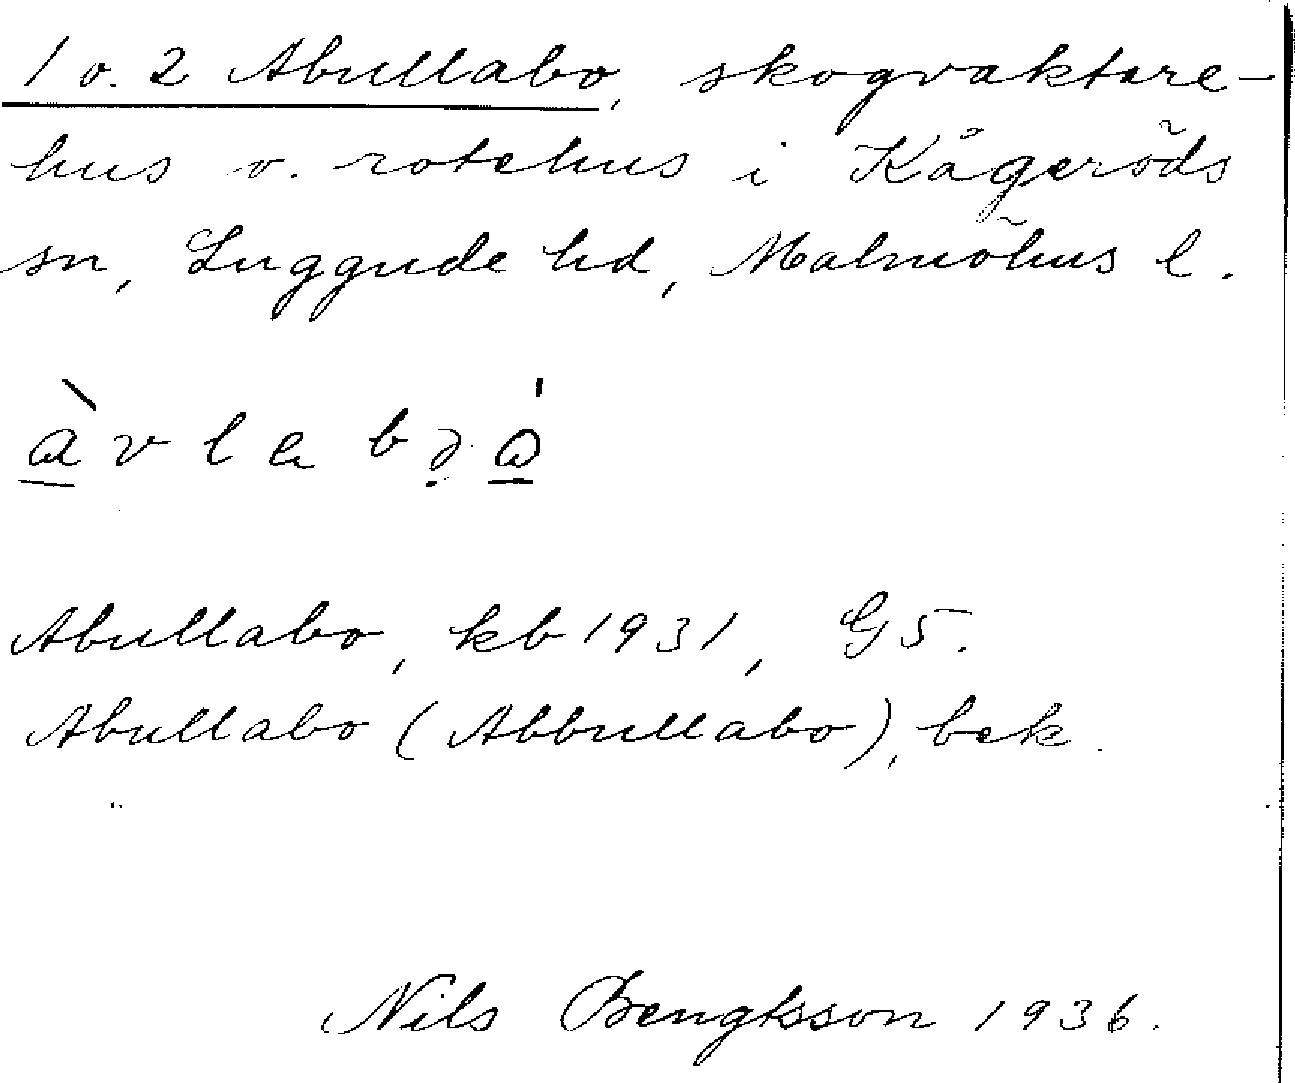 1 o. 2 Abullabo, skogvaktare-
hus o. rotehus i Kågeröds
sn, Luggude hd, Malmöhus l.
Abullabo, kb 1931, G5.
Abullabo (Abbullabo), bek.
Nils Bengtsson 1936.